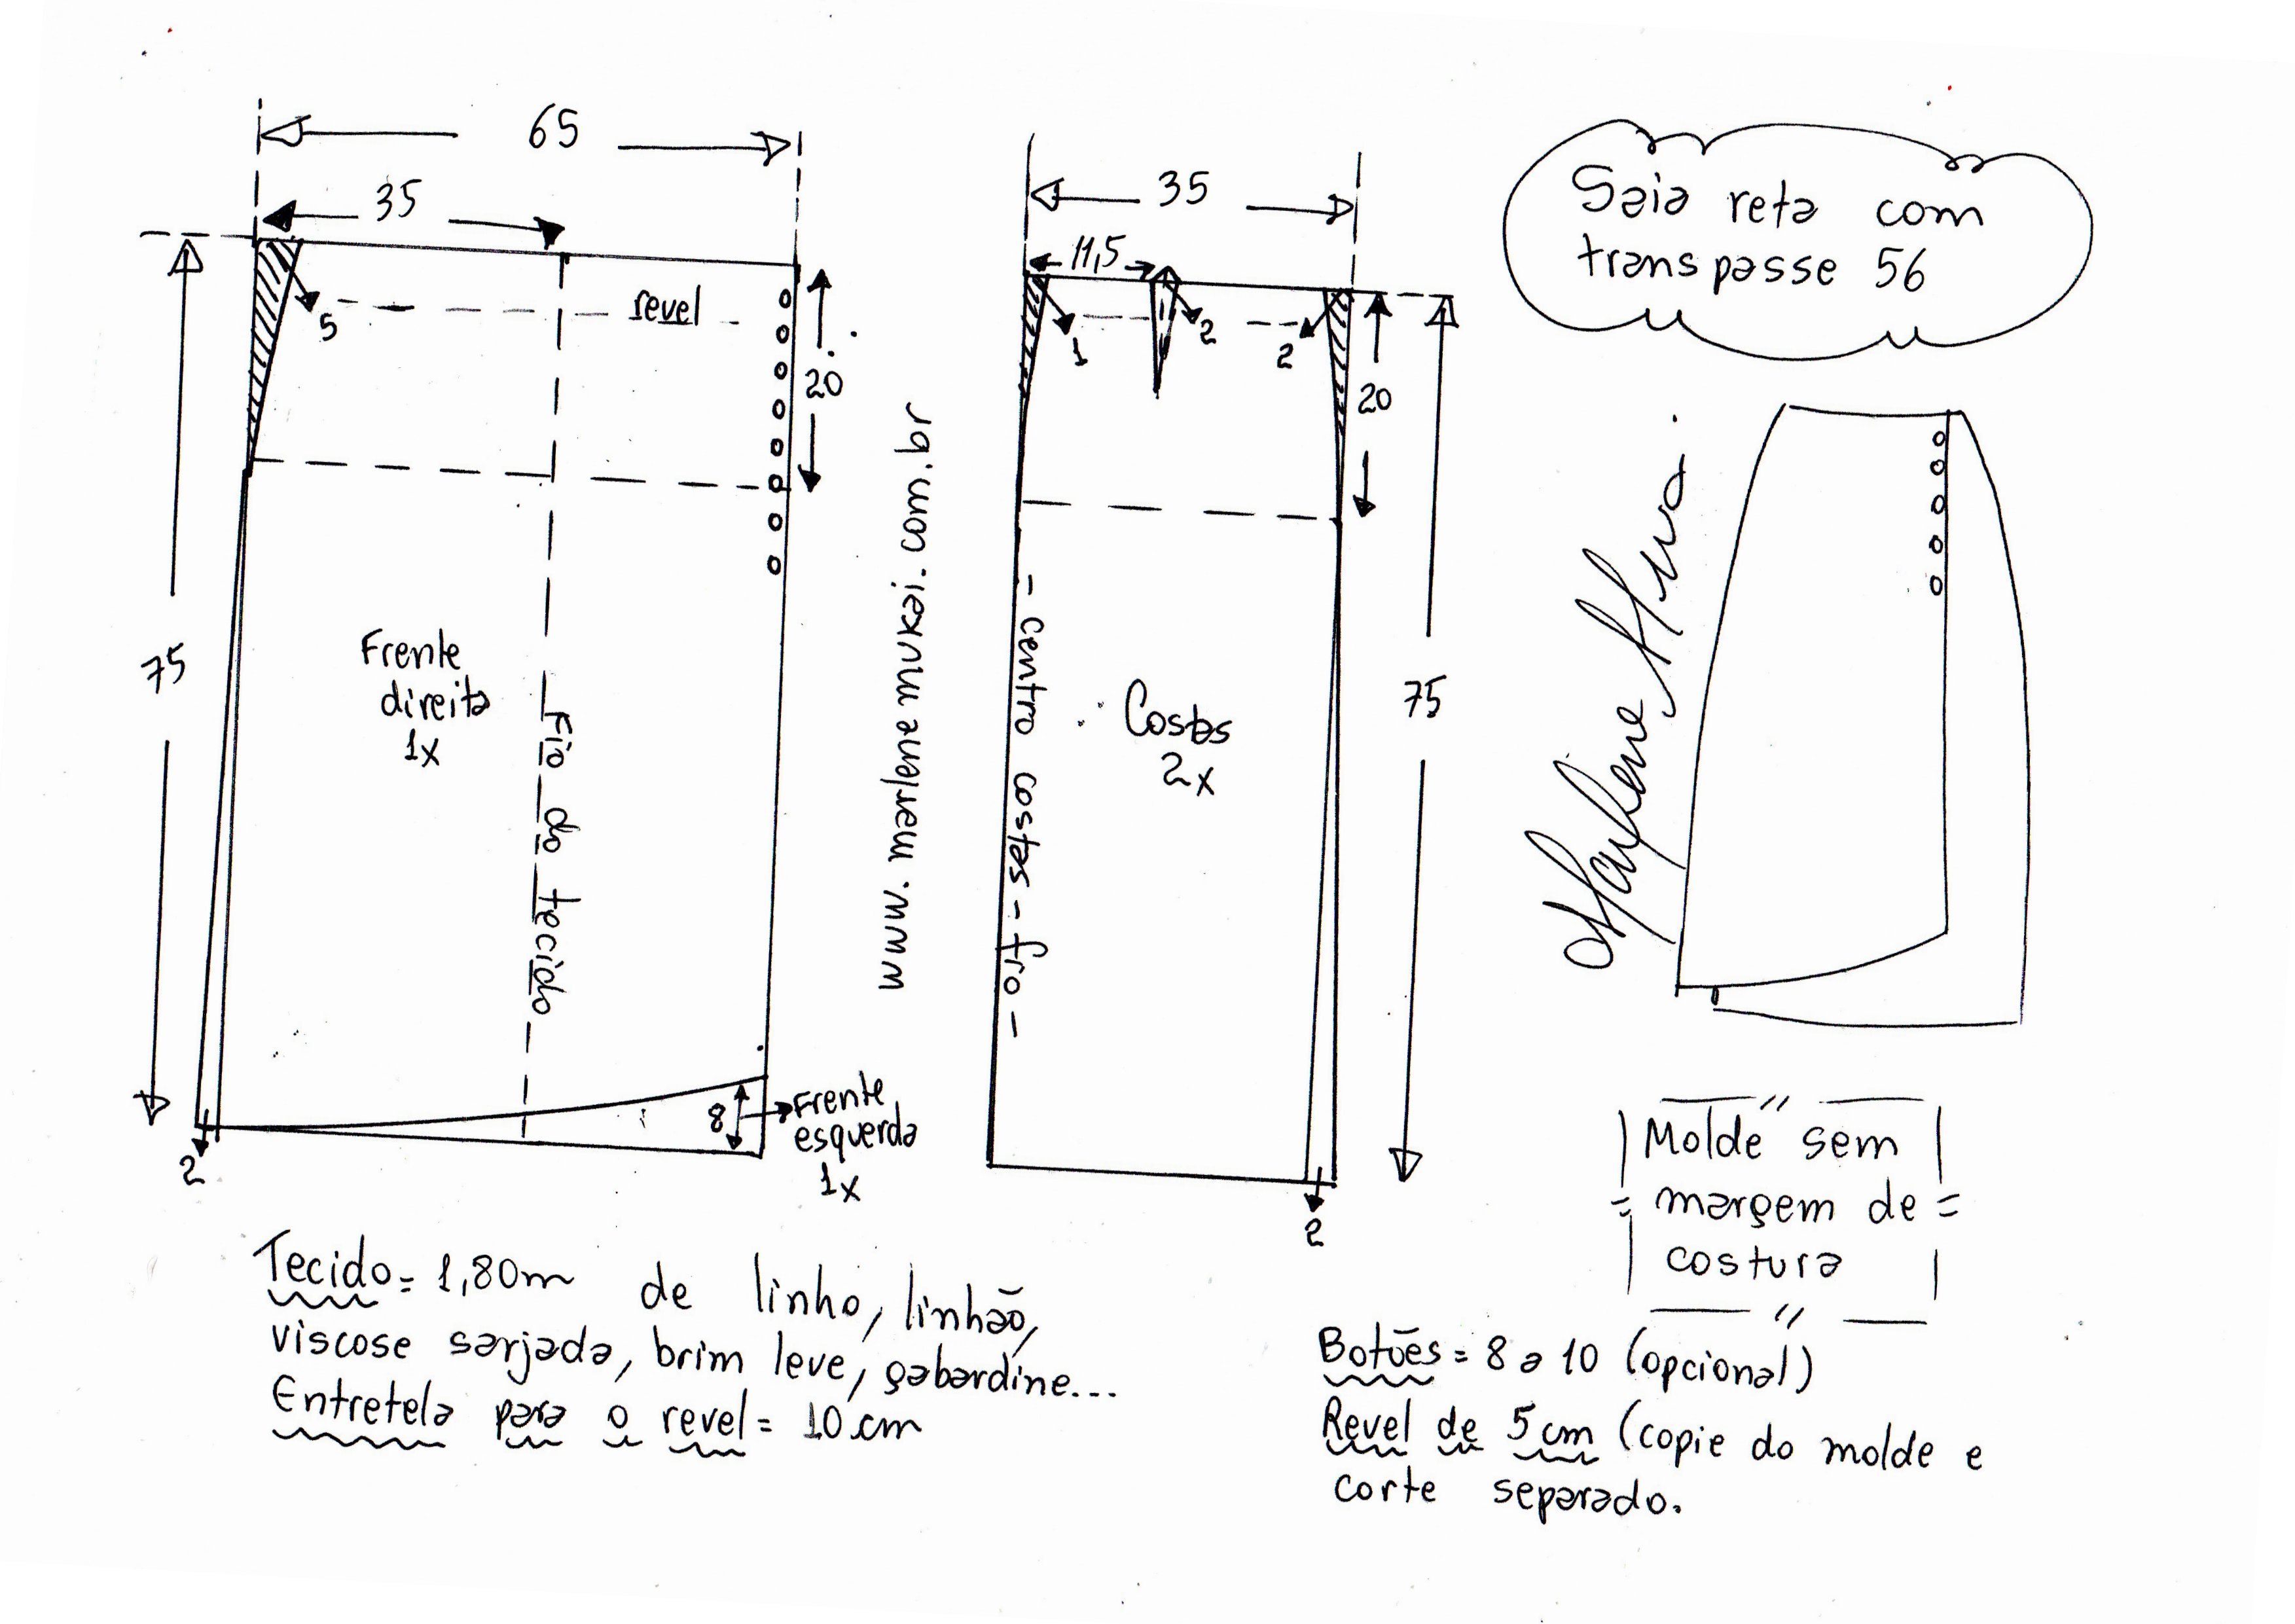 65
35
5
revel
20
75
Frente
direita
1x
Fio do tecido
8
Frente
esquerda
1x
2
www.marlenemukai.com.br
35
11,5
1
2
2
20
- centro costas - fio -
Costas
2x
75
2
Saia reta com
transpasse 56
Marlene Mukai
Molde sem
margem de
costura
Tecido = 1,80m de linho, linhão,
viscose sarjada, brim leve, gabardine...
Entretela para o revel = 10 cm
Botões = 8 a 10 (opcional)
Revel de 5 cm (copie do molde e
corte separado.